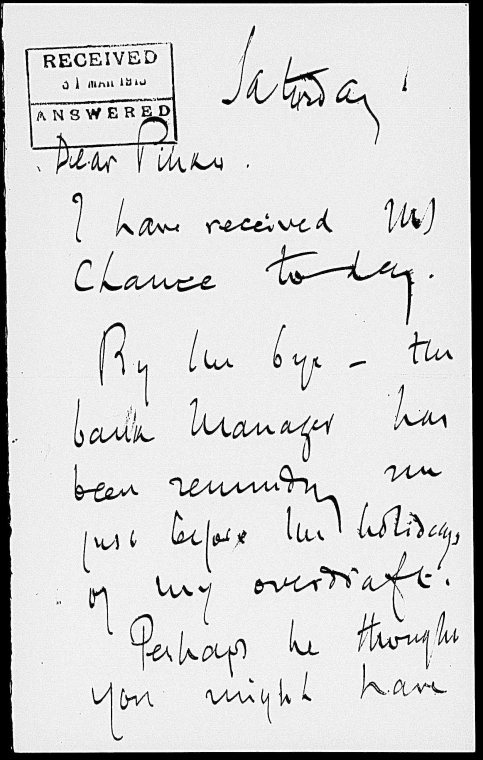 RECEIVED
31 MAR 1913
ANSWERED
Saturday
Dear Pinker.
I have received MS
Chance to-day.
By the bye – the
bank manager has
been reminding me
just before the holidays
of my overdraft.
Perhaps he thought
you might have